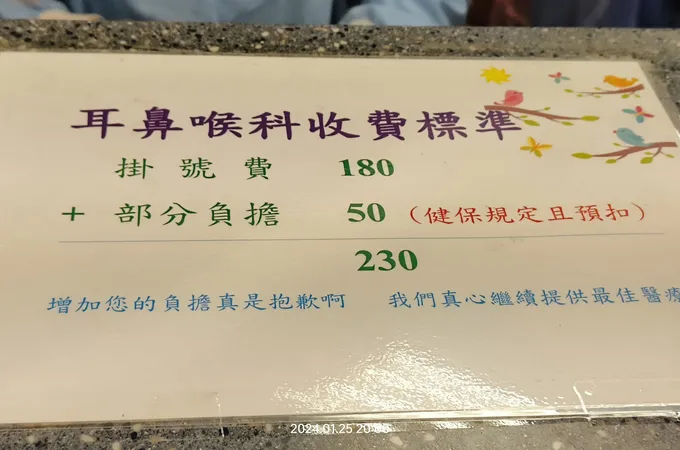 耳鼻喉科收費標準
掛號費 180
+ 部分負擔 50 (健保規定且預扣)
230
增加您的負擔真是抱歉啊 我們真心繼續提供最佳醫療
2024.01.25 20: